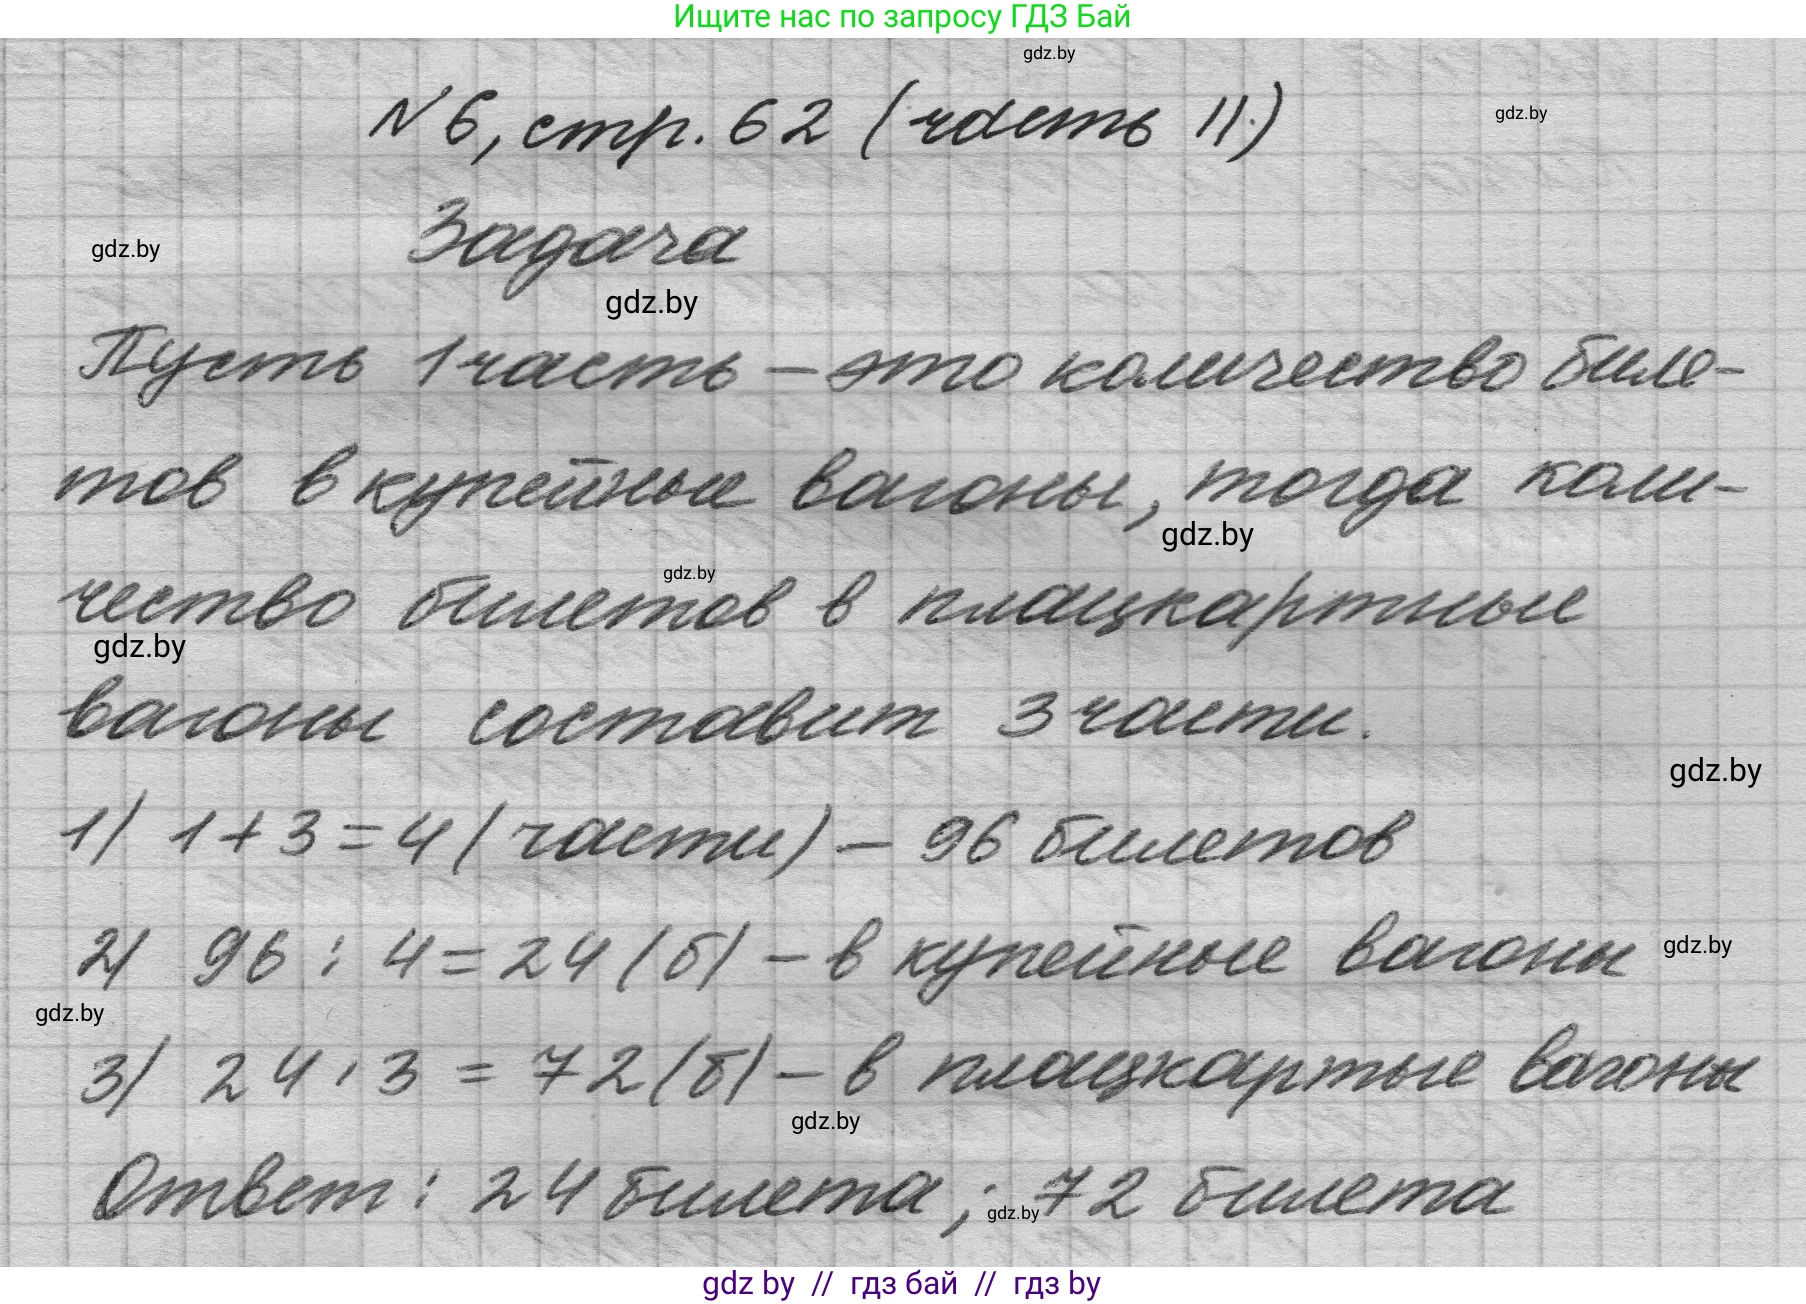 Ищите нас по запросу ГДЗ Бай
gdz.by
№6, стр. 62 (часть II.)
gdz.by
Задача
gdz.by
gdz.by
Пусть 1 часть – это количество биле-
тов в купейные вагоны, тогда коли-
gdz.by
gdz.by
чество билетов в плацкартные
gdz.by
вагоны составит 3 части.
gdz.by
1) 1+3=4 (части) – 96 билетов
2) 96 : 4 = 24 (б) – в купейные вагоны
gdz.by
gdz.by
3) 24 · 3 = 72 (б) – в плацкартые вагоны
gdz.by
Ответ: 24 билета; 72 билета
gdz.by
gdz by // гдз бай // гдз by